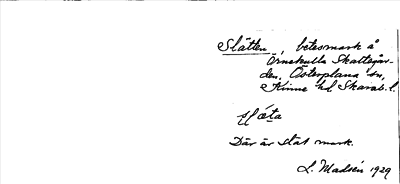 Slätten, betesmark å
Örnekulla Skattegår-
den, Österplana sn,
Kinne hd Skarab. l.
Där är slät mark.
L. Madsén 1929